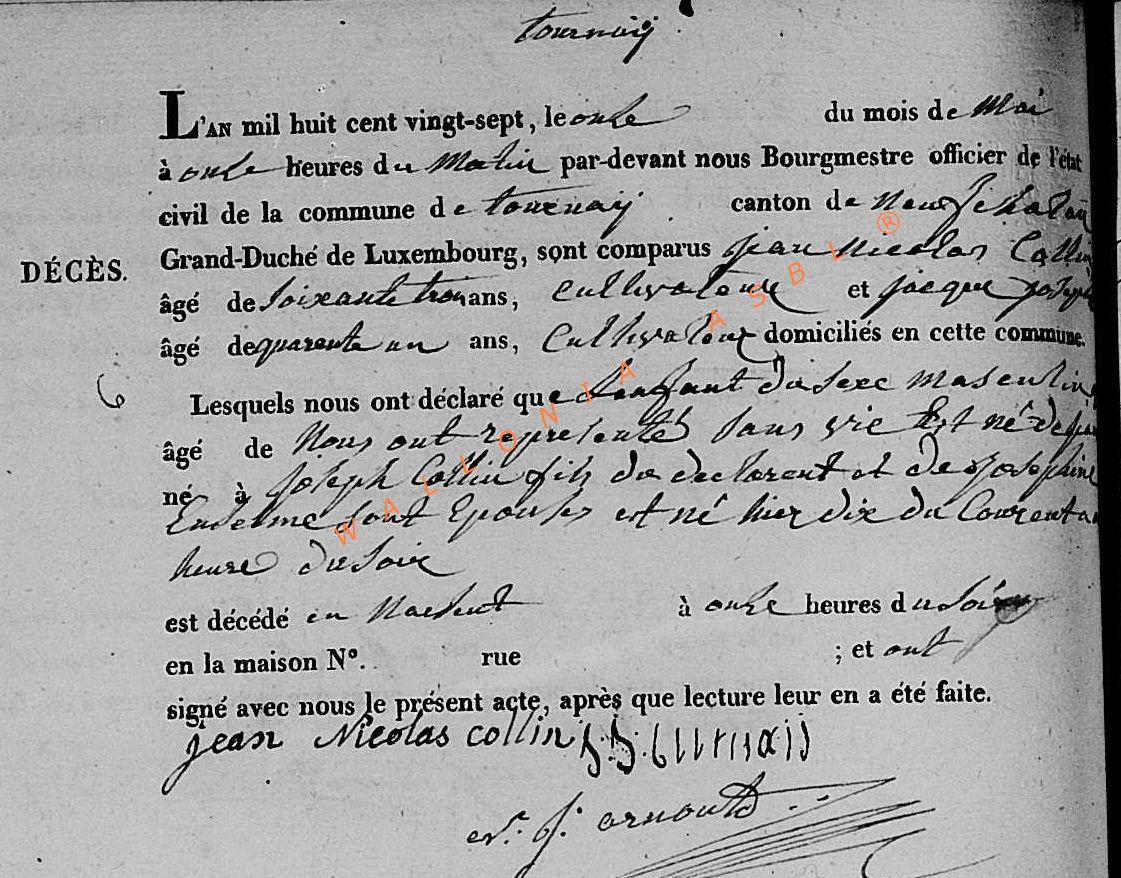 tournaÿ
L'AN mil huit cent vingt-sept, le onse du mois de Mai
à onse heures du Matin par-devant nous Bourgmestre officier de l'état
civil de la commune de tournaÿ canton de Neufchatau
DÉCÈS.
Grand-Duché de Luxembourg, sont comparus jean Nicolas Collin
âgé de Soixante trois ans, Cultivateur et jacque joseph
âgé de quarente un ans, Cultivateur domiciliés en cette commune.
6
Lesquels nous ont déclaré que L'enfant du sexe masculin
âgé de Nous ont representés sans vie Est né de
né à joseph Collin fils du declarent et de josephine
sont Epouses est né hier dix du Courent a
heure du soir
est décédé en Naisent à onse heures du soir
en la maison N°. rue ; et ont
signé avec nous le présent acte, après que lecture leur en a été faite.
jean Nicolas collin j. j.
arnould
WALLONIA ASBL ®